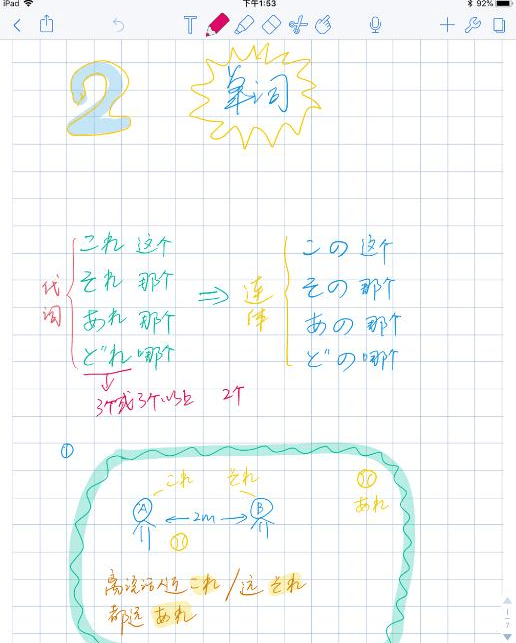 iPad 下午1:53 92%
T
2 单词
代词
これ 这个
それ 那个
あれ 那个
どれ 哪个
⇒
连体
この 这个
その 那个
あの 那个
どの 哪个
3个或3个以上 2个
①
これ それ
A ←2m→ B
あれ
离说话人近 これ / 远 それ
都远 あれ
1
7